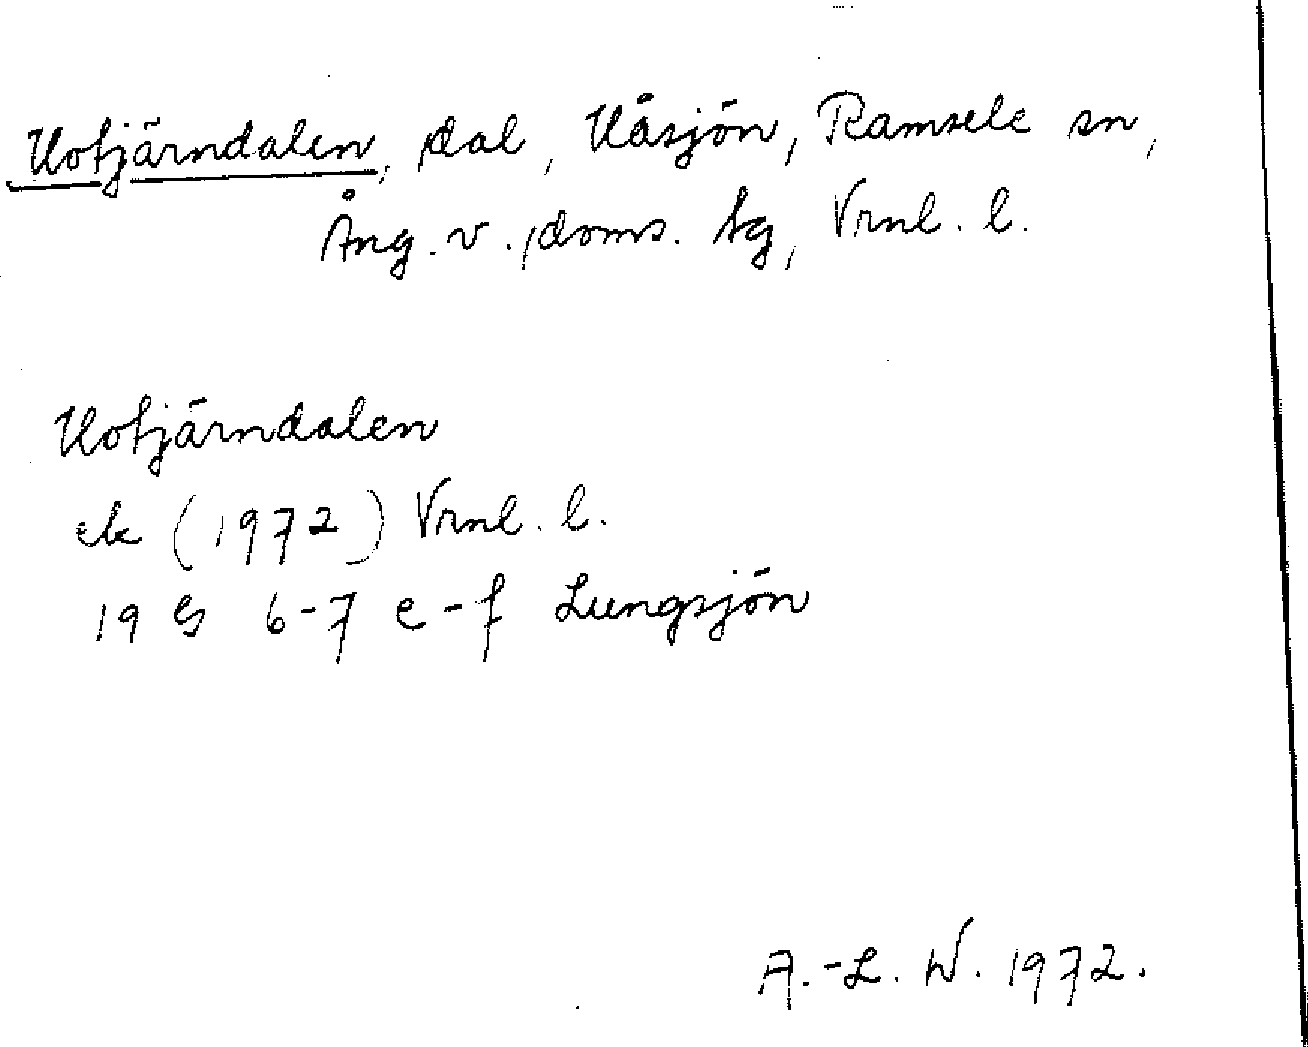 Kotjärndalen, dal, Kåsjön, Ramsele sn,
Ång. v. doms. tg, Vrnl. l.
Kotjärndalen
ek (1972) Vrnl. l.
19 G 6-7 e-f Lungsjön
A.-L. W. 1972.